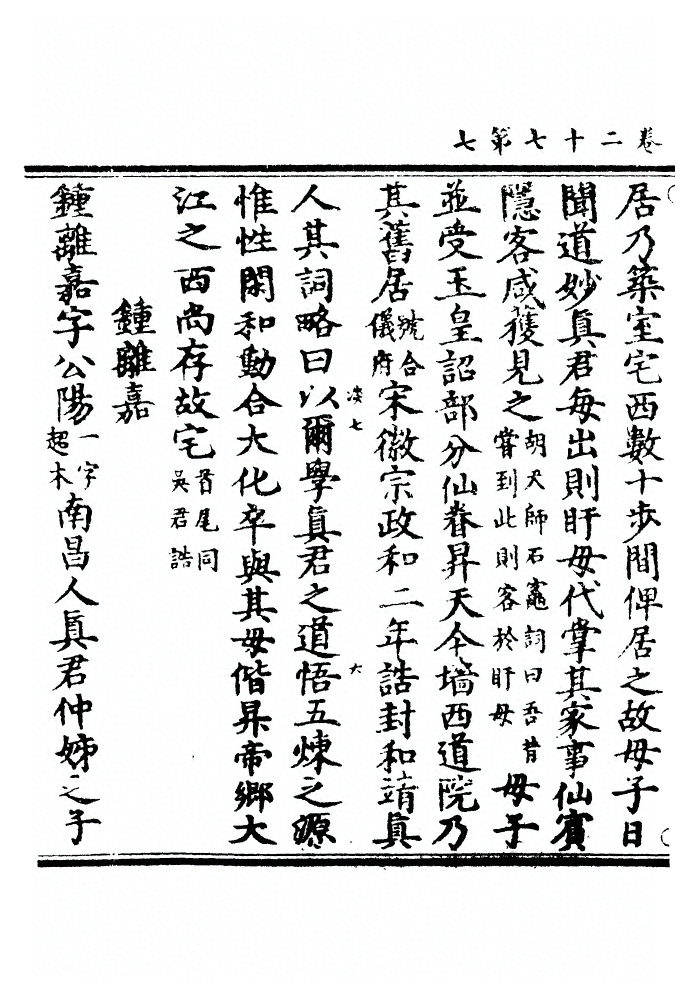 卷二十七第七
居乃築室宅西數十步間俾居之故母子日
聞道妙真君每出則盱母代掌其家事仙賓
隱客咸獲見之胡天師石龕詞曰吾昔嘗到此則客於盱母母子
並受玉皇詔部分仙眷昇天今墻西道院乃
其舊居號合儀府宋徽宗政和二年誥封和靖真
淡七
大
人其詞略曰以爾學真君之道悟五煉之源
惟性閑和動合大化卒與其母偕昇帝鄉大
江之西尚存故宅首尾同吳君誥
鍾離嘉
鍾離嘉字公陽一字超本南昌人真君仲姊之子